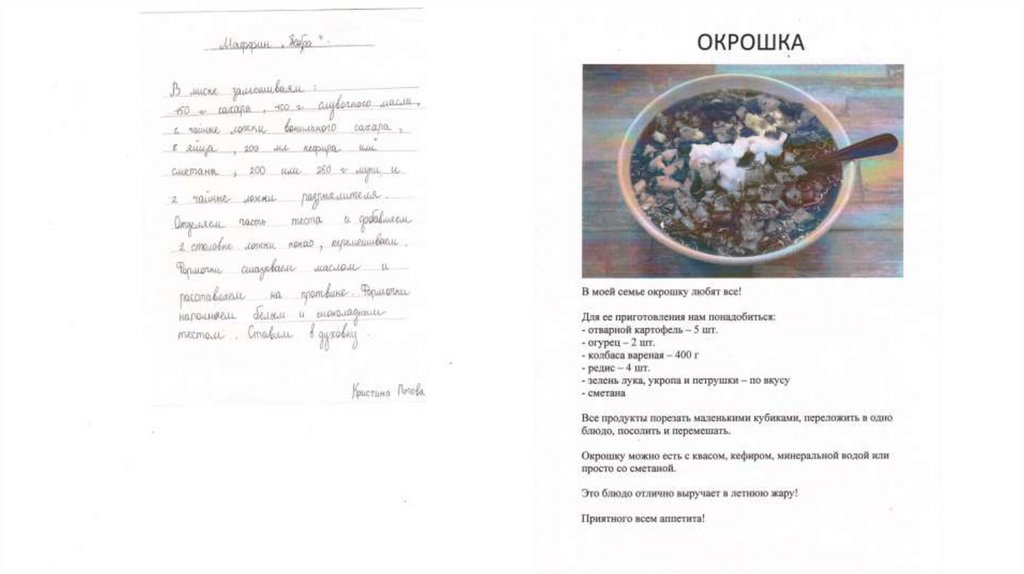 Маффин „Зебра".
В миске замешиваем :
150 г сахара , 100 г сливочного масла ,
2 чайные ложки ванильного сахара ,
2 яйца , 200 мл кефира или
сметаны , 200 или 250 г муки и
2 чайные ложки разрыхлителя .
Отделяем часть теста и добавляем
2 столовые ложки какао , перемешиваем .
Формочки смазываем маслом и
расставляем на противне . Формочки
наполняем белым и шоколадным
тестом . Ставим в духовку .
Кристина Попова
ОКРОШКА
В моей семье окрошку любят все!
Для ее приготовления нам понадобиться:
- отварной картофель – 5 шт.
- огурец – 2 шт.
- колбаса вареная – 400 г
- редис – 4 шт.
- зелень лука, укропа и петрушки – по вкусу
- сметана
Все продукты порезать маленькими кубиками, переложить в одно
блюдо, посолить и перемешать.
Окрошку можно есть с квасом, кефиром, минеральной водой или
просто со сметаной.
Это блюдо отлично выручает в летнюю жару!
Приятного всем аппетита!